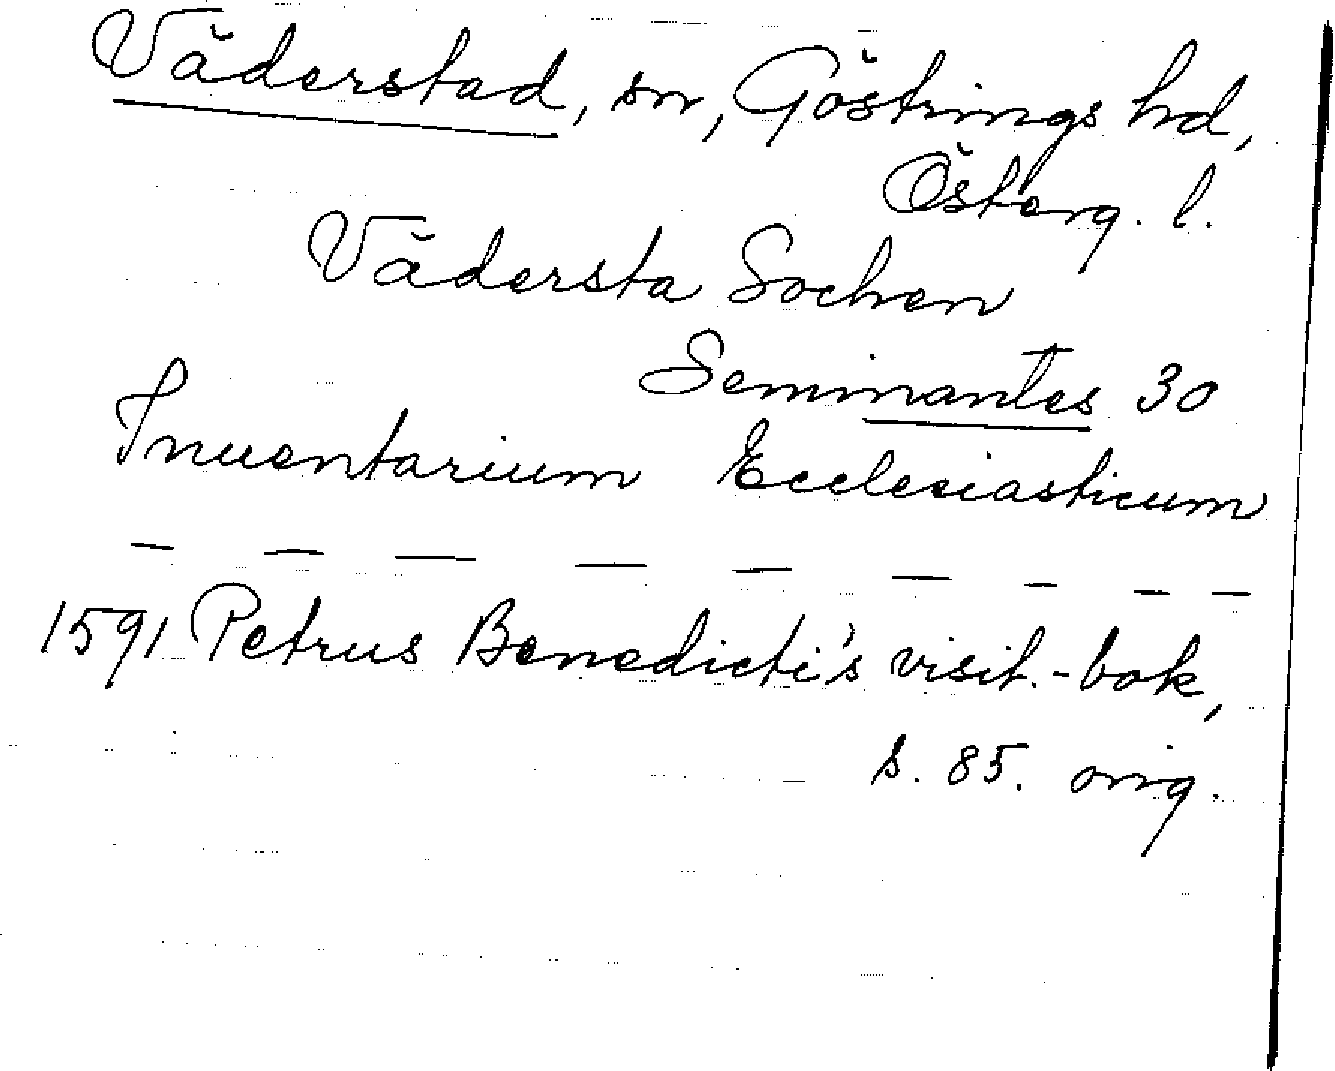 Väderstad, sn, Göstrings hd,
Österg. l.
Vädersta Sochen
Seminantes 30
Inuentarium Ecclesiasticum
— — — — — — — —
1591 Petrus Benedicti's visit.-bok,
s. 85. orig.